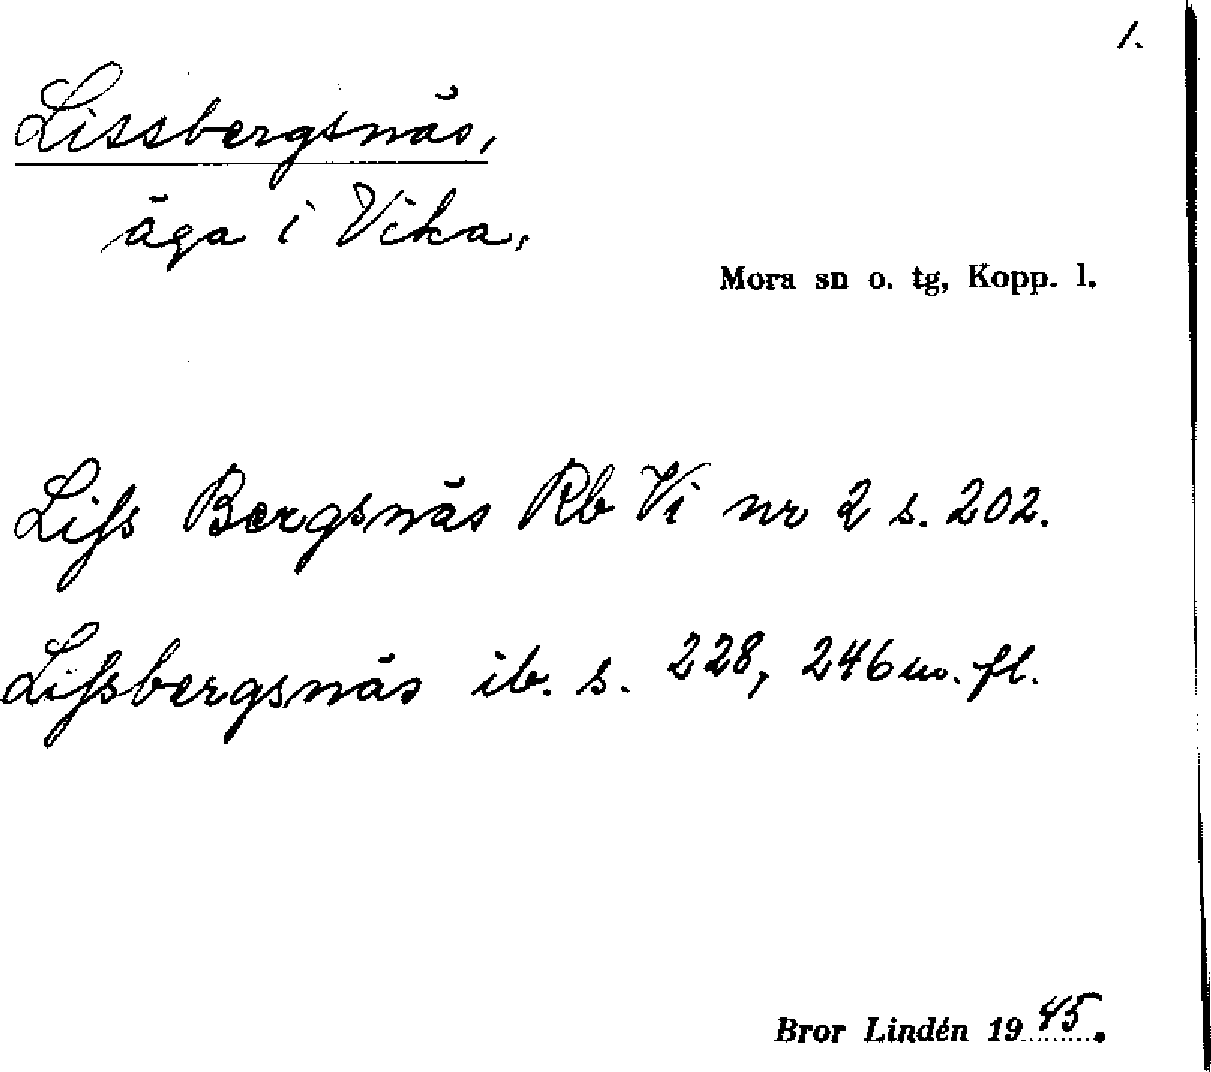 1.
Lissbergsnäs,
äga i Vika,
Mora sn o. tg, Kopp. l.
Liſs Bergsnäs Rb Vi nr 2 s. 202.
Liſsbergsnäs ib. s. 228, 246 m. fl.
Bror Lindén 1945.